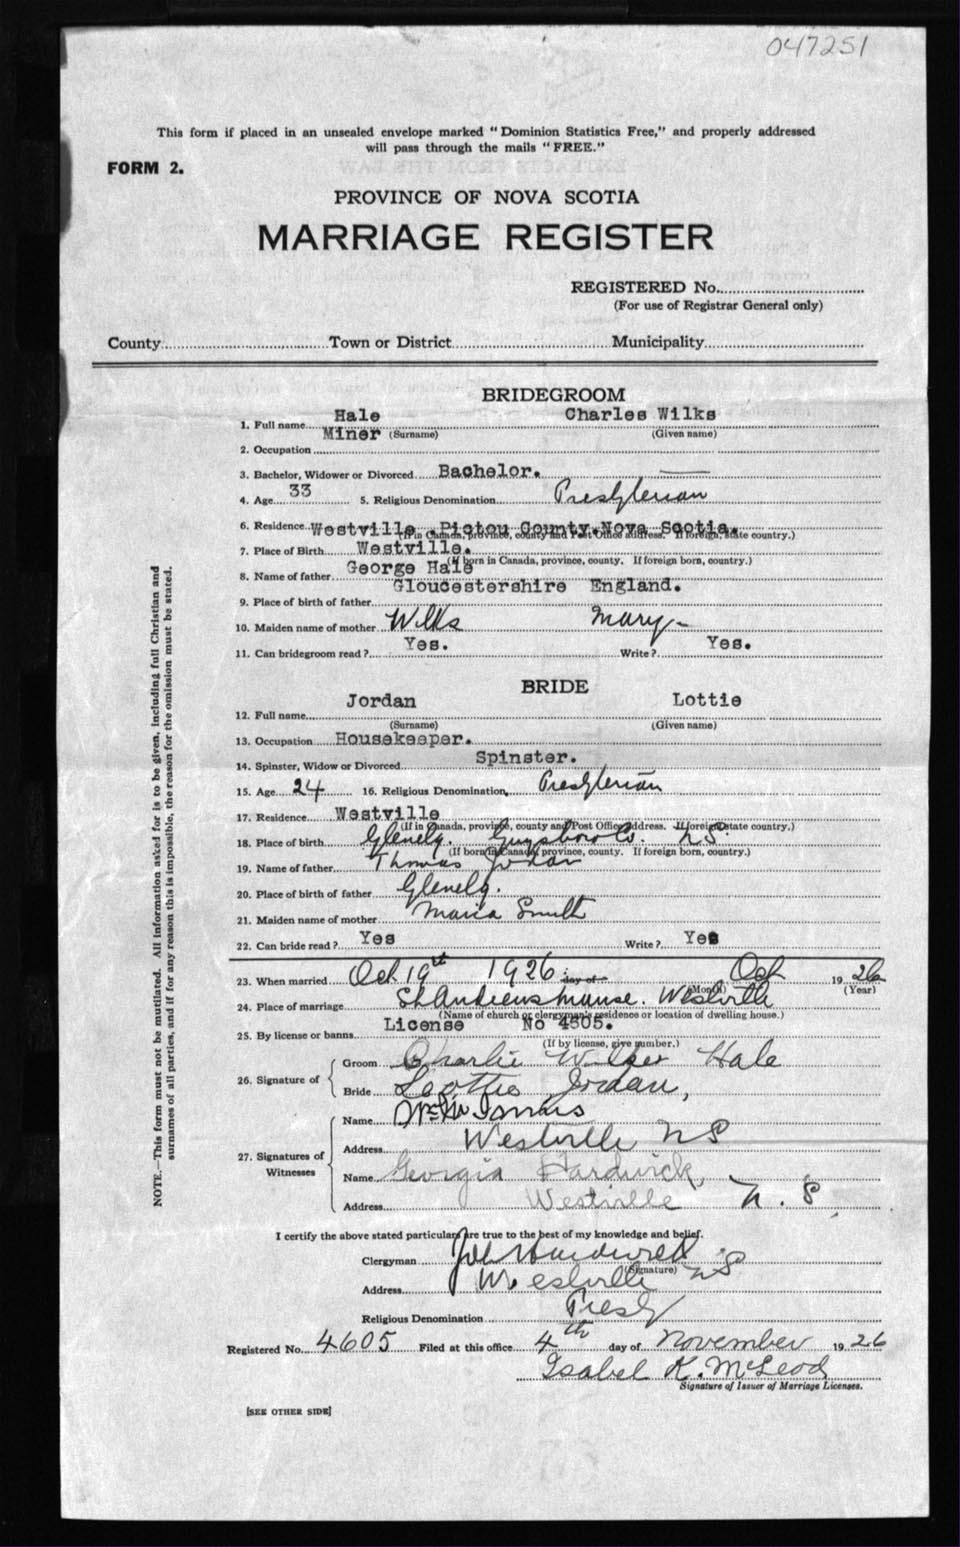 047251
This form if placed in an unsealed envelope marked "Dominion Statistics Free," and properly addressed
will pass through the mails "FREE."
FORM 2.
PROVINCE OF NOVA SCOTIA
MARRIAGE REGISTER
REGISTERED No.
(For use of Registrar General only)
County Town or District Municipality
BRIDEGROOM
Hale Charles Wilks
1. Full name
Miner (Surname) (Given name)
2. Occupation
3. Bachelor, Widower or Divorced Bachelor.
4. Age 33 5. Religious Denomination Presbyterian
6. Residence Westville Pictou County. Nova Scotia.
(If in Canada, province, county and Post Office address. If foreign, state country.)
7. Place of Birth Westville.
(If born in Canada, province, county. If foreign born, country.)
8. Name of father George Hale
9. Place of birth of father Gloucestershire England.
10. Maiden name of mother Wilks Mary
11. Can bridegroom read? Yes. Write? Yes.
BRIDE
12. Full name Jordan Lottie
(Surname) (Given name)
13. Occupation Housekeeper.
14. Spinster, Widow or Divorced Spinster.
15. Age 24 16. Religious Denomination Presbyterian
17. Residence Westville
(If in Canada, province, county and Post Office address. If foreign state country.)
18. Place of birth Glenelg. Guysboro Co. N.S.
(If born in Canada, province, county. If foreign born, country.)
19. Name of father Thomas Jordan
20. Place of birth of father Glenelg.
21. Maiden name of mother Maria Smith
22. Can bride read? Yes Write? Yes
23. When married Oct 19th 1926 day of Oct 1926
(Month) (Year)
24. Place of marriage St Andrews Manse. Westville
(Name of church or clergyman's residence or location of dwelling house.)
25. By license or banns License No 4605.
(If by license, give number.)
26. Signature of
Groom Charlie Hale
Bride Lottie Jordan,
27. Signatures of Witnesses
Name
Address Westville NS
Name Georgia Hardwick,
Address Westville N. S
I certify the above stated particulars are true to the best of my knowledge and belief.
Clergyman
(Signature)
Address Westville NS
Religious Denomination Presby
Registered No. 4605 Filed at this office 4th day of November 1926
Isabel K. McLeod
Signature of Issuer of Marriage Licenses.
[SEE OTHER SIDE]
NOTE.—This form must not be mutilated. All information asked for is to be given, including full Christian and
surnames of all parties, and if for any reason this is impossible, the reason for the omission must be stated.